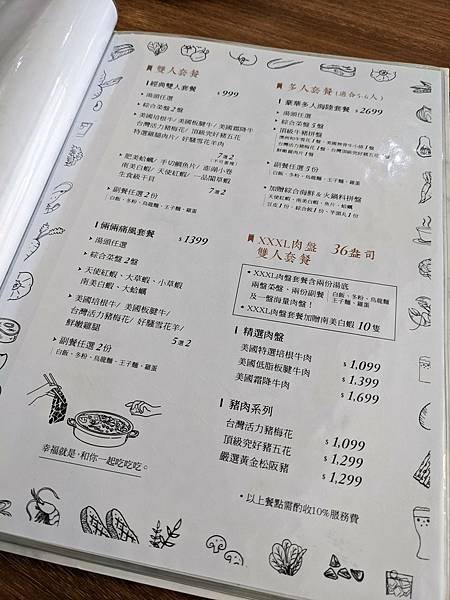 雙人套餐
經典雙人套餐 $999
▸ 湯頭任選
▸ 綜合菜盤2盤
▸ 美國培根牛/美國板腱牛/美國霜降牛
台灣活力豬梅花/頂級究好豬五花
特選雞腿肉片/好騷雪花羊肉
7選2
▸ 肥美蛤蠣/手切鯛魚片/澎湖小卷
南美白蝦/天使紅蝦/一品閣草蝦
生食級干貝
7選2
▸ 副餐任選2份
白飯、多粉、烏龍麵、王子麵、雞蛋
倆倆痛風套餐 $1399
▸ 湯頭任選
▸ 綜合菜盤2盤
▸ 天使紅蝦、大草蝦、小草蝦
南美白蝦、大蛤蠣
▸ 美國培根牛/美國板腱牛/
台灣活力豬梅花/好騷雪花羊/
鮮嫩雞腿
5選2
▸ 副餐任選2份
白飯、多粉、烏龍麵、王子麵、雞蛋
幸福就是,和你一起吃吃吃。
多人套餐(適合5-6人)
豪華多人海陸套餐 $2699
▸ 湯頭任選
▸ 綜合菜盤5盤
▸ 頂級牛豬拼盤
▸ 副餐任選5份
白飯、多粉、烏龍麵、王子麵、雞蛋
▸ 加贈綜合海鮮&火鍋料拼盤
天使紅蝦、南美白蝦、魚片、蛤蠣
豆皮1份、綜合餃1份、芋頭丸1份
XXXL肉盤 36盎司
雙人套餐
• XXXL肉盤套餐含兩份湯底
兩盤菜盤、兩份副餐 白飯、多粉、烏龍麵 王子麵、雞蛋
及一盤海量肉盤!
• XXXL肉盤套餐加贈南美白蝦 10隻
精選肉盤
美國特選培根牛肉 $1,099
美國低脂板腱牛肉 $1,399
美國霜降牛肉 $1,699
豬肉系列
台灣活力豬梅花 $1,099
頂級究好豬五花 $1,299
嚴選黃金松阪豬 $1,299
• 以上餐點需酌收10%服務費